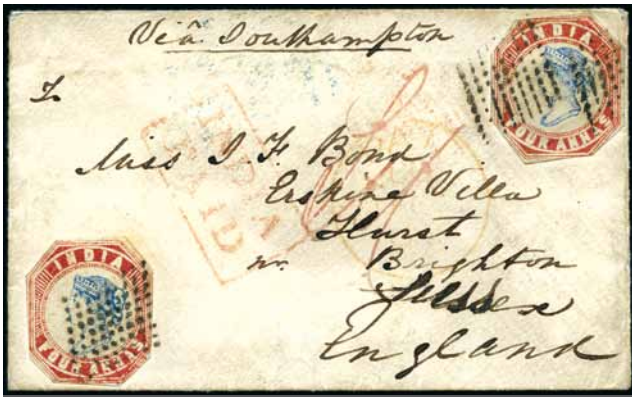 Viâ Southampton
INDIA
FOUR ANNAS
To
INDIA
PAID
Miss I. F. Bond
Erskine Villa
Hurst
nr. Brighton
Sussex
England
INDIA
FOUR ANNAS